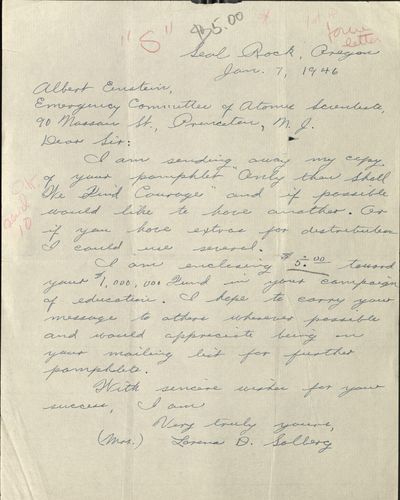 "S" $5.00
form
letter
Seal Rock, Oregon
Jan. 7, 1946
Albert Einstein,
Emergency Committee of Atomic Scientists,
90 Nassau St., Princeton, N. J.
Dear Sir:
I am sending away my copy
of your pamphlet "Only then shall
We Find Courage" and if possible
would like to have another. Or
if you have extras for distribution
I could use several.
I am enclosing $5.00 toward
your $1,000,000 Fund in your campaign
of education. I hope to carry your
message to others wherever possible
and would appreciate being on
your mailing list for further
pamphlets.
With sincere wishes for your
success, I am
Very truly yours,
(Mrs.) Lorena D. Solberg